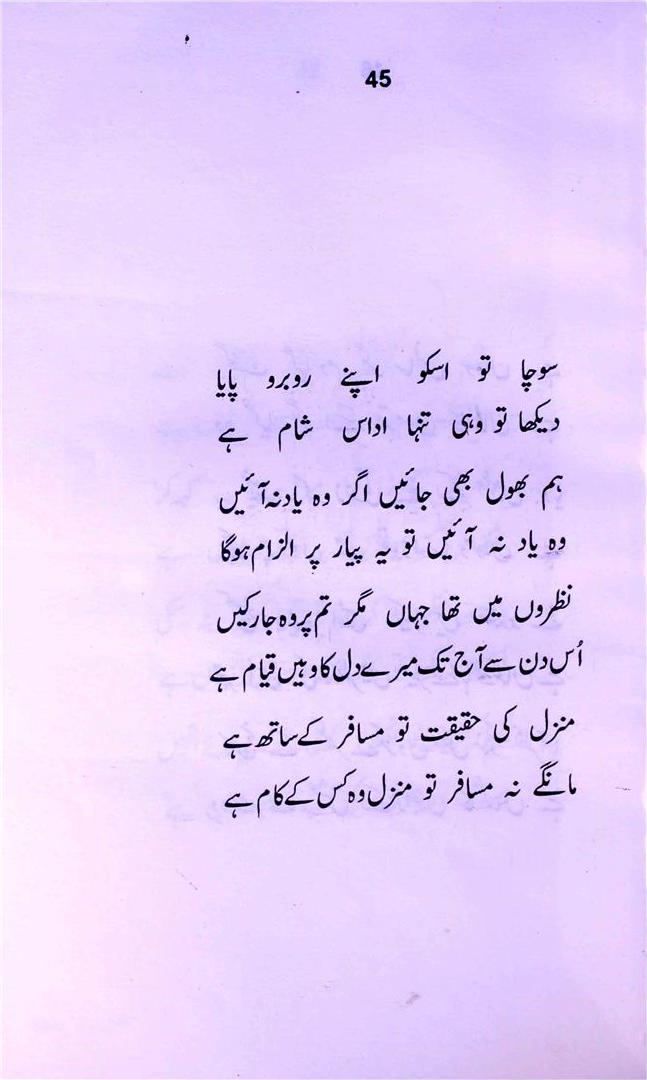 45
سوچا تو اسکو اپنے روبرو پایا
دیکھا تو وہی تنہا اداس شام ہے
ہم بھول بھی جائیں اگر وہ یاد نہ آئیں
وہ یاد نہ آئیں تو یہ پیار پر الزام ہوگا
نظروں میں تھا جہاں مگر تم پر وہ جا رکیں
اُس دن سے آج تک میرے دل کا وہیں قیام ہے
منزل کی حقیقت تو مسافر کے ساتھ ہے
مانگے نہ مسافر تو منزل وہ کس کے کام ہے